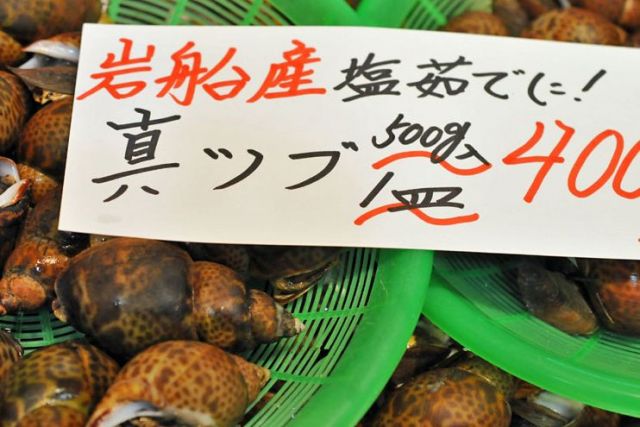 岩船産 塩茹でに!
真ツブ 500g入 400
1皿